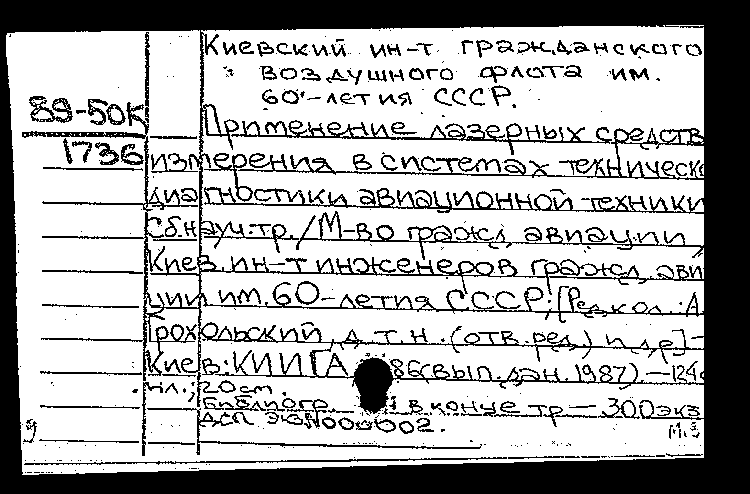 Киевский ин-т гражданского
воздушного флота им.
60-летия СССР.
89-50К
1736
Применение лазерных средств
измерения в системах техническо
диагностики авиационной техники
Сб.науч.тр./М-во гражд. авиации,
Киев. ин-т инженеров гражд. ави
ции им. 60-летия СССР; [Редкол.: А.
Грохольский, д.т.н. (отв. ред.) и др.] -
Киев: КИИГА 86 (вып. дан. 1987). - 124с
ил.; 20 см.
Библиогр. в конце тр. - 300 экз
ДСП экз N000002.